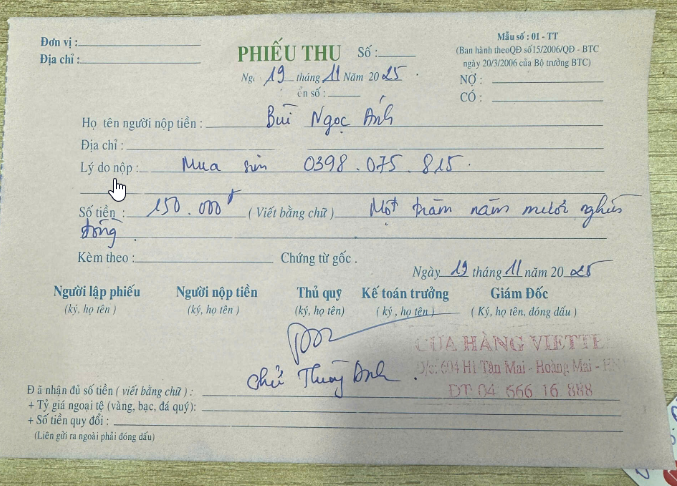 Đơn vị :
Địa chỉ :
PHIẾU THU Số :
Ng. 19 tháng 11 Năm 2025
Mẫu số : 01 - TT
(Ban hành theoQĐ số15/2006/QĐ - BTC
ngày 20/3/2006 của Bộ trưởng BTC)
NỢ :
CÓ :
Họ tên người nộp tiền : Bùi Ngọc Ánh
Địa chỉ :
Lý do nộp : Mua sim 0398.075.815.
Số tiền : 150.000đ ( Viết bằng chữ ) Một trăm năm mươi nghìn
đồng
Kèm theo : Chứng từ gốc .
Ngày 19 tháng 11 năm 2025
Người lập phiếu Người nộp tiền Thủ quỹ Kế toán trưởng Giám Đốc
(ký, họ tên ) (ký, họ tên ) (ký, họ tên) ( ký, họ tên ) ( Ký, họ tên, đóng dấu )
Chử Thùy Anh
CỬA HÀNG VIETTE
Đ/c: 694 H1 Tân Mai - Hoàng Mai -
ĐT 04 666 16 888
Đã nhận đủ số tiền ( viết bằng chữ ) :
+ Tỷ giá ngoại tệ (vàng, bạc, đá quý):
+ Số tiền quy đổi :
(Liên gửi ra ngoài phải đóng dấu)